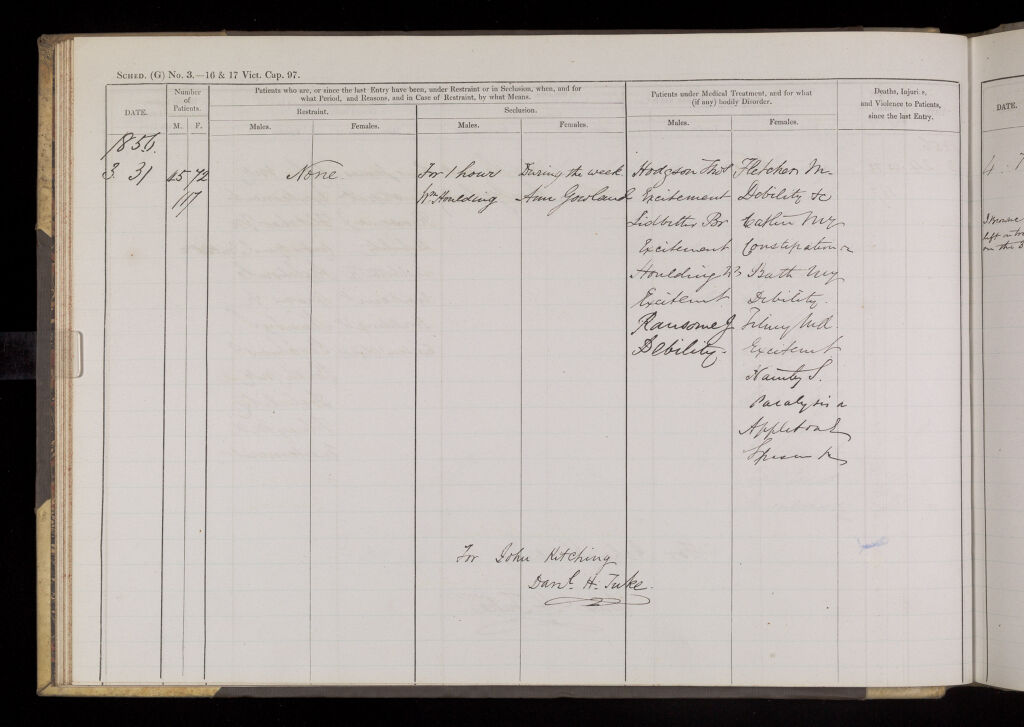 SCHED. (G) No. 3.—16 & 17 Vict. Cap. 97.
DATE.
Number of Patients.
M. F.
Patients who are, or since the last Entry have been, under Restraint or in Seclusion, when, and for
what Period, and Reasons, and in Case of Restraint, by what Means.
Restraint.
Seclusion.
Males. Females. Males. Females.
Patients under Medical Treatment, and for what
(if any) bodily Disorder.
Males. Females.
Deaths, Injuries,
and Violence to Patients,
since the last Entry.
DATE.
1856.
3. 31 45 72 None. For 1 hour During the week Hodgson Thos Fletcher M.
117 Wm Houlding Ann Gowland Excitement Debility &c
Lidbetter Br Catlin My
Excitement Constipation
Houlding Wm Bath My
Excitemt Debility.
Ransome J
Debility. Excitemt
S.
Paralysis
Appleton E
For John Kitching
Danl. H. Tuke.